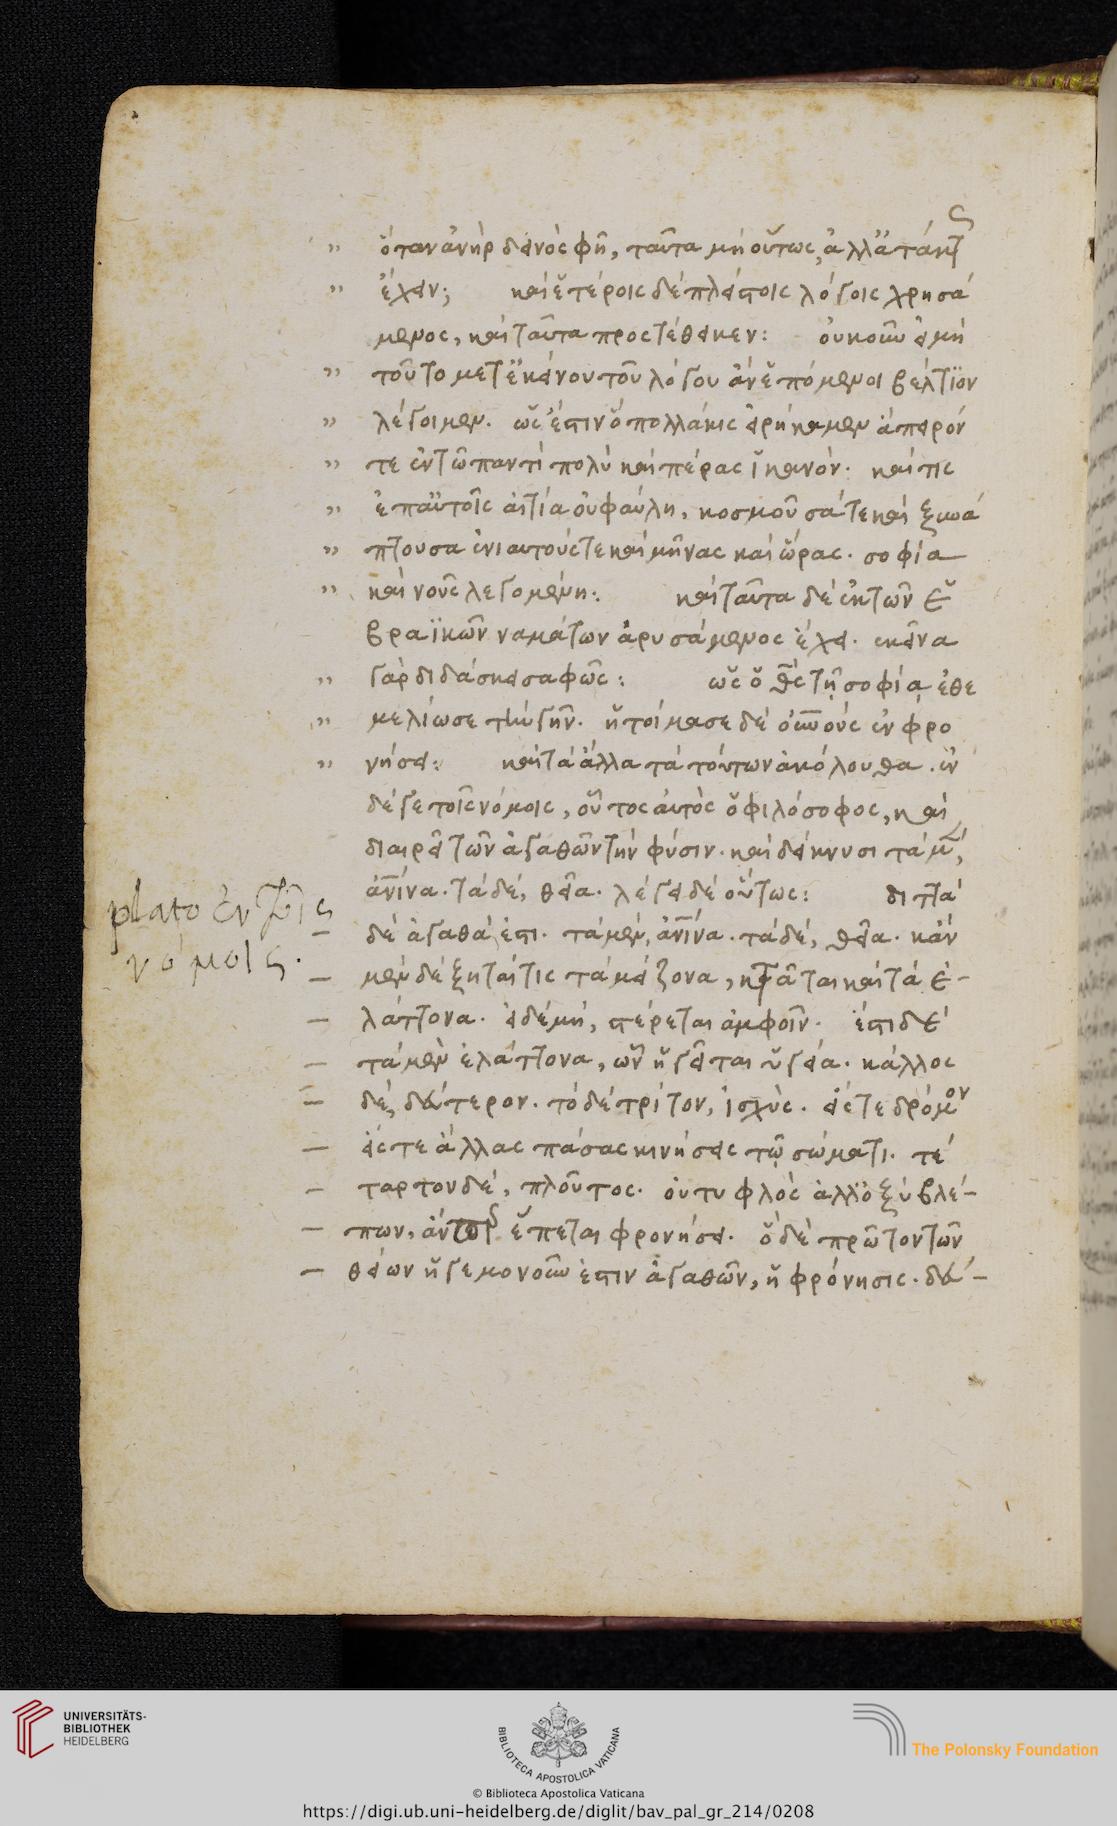 ὅταν ἀνὴρ δεινὸς φῇ, ταῦτα μὴ οὕτως, ἀλλ' ἀτάκτως
ἔχειν; καὶ ἑτέροις δὲ πλείστοις λόγοις χρησά
μενος, καὶ ταῦτα προστέθεικεν: οὐκοῦν εἰ μὴ
τοῦτο μετ' ἐκείνου τοῦ λόγου ἂν ἑπόμενοι βέλτιον
λέγοιμεν. ὡς ἔστιν ὃ πολλάκις εἰρήκαμεν ἄπειρόν
τε ἐν τῷ παντὶ πολὺ καὶ πέρας ἱκανόν. καί τις
ἐπ' αὐτοῖς αἰτία οὐ φαύλη, κοσμοῦσά τε καὶ ξυνά
πτουσα ἐνιαυτούς τε καὶ μῆνας καὶ ὥρας. σοφία
καὶ νοῦς λεγομένη: καὶ ταῦτα δὲ ἐκ τῶν ἑ
βραϊκῶν ναμάτων ἀρυσάμενος ἔχει. ἐκεῖνα
γὰρ διδάσκει σαφῶς: ὡς ὁ θς τῇ σοφίᾳ ἐθε
μελίωσε τὴν γῆν. ἡτοίμασε δὲ οὐνοὺς ἐν φρο
νήσει: καὶ τὰ ἄλλα τὰ τούτων ἀκόλουθα. ἐν
δέ γε τοῖς νόμοις, οὗτος αὐτὸς ὁ φιλόσοφος, καὶ
διαιρεῖ τῶν ἀγαθῶν τὴν φύσιν. καὶ δείκνυσι τὰ μὲν,
ἀνινα. τὰ δὲ, θεῖα. λέγει δὲ οὕτως: διττὰ
plato ἐν τοῖς
δὲ ἀγαθά ἐστι. τὰ μὲν, ἀνινα. τὰ δὲ, θεῖα. κἂν
νόμοις.
μὲν δέξηταί τις τὰ μείζονα, κτᾶται καὶ τὰ ἐ-
λάττονα. εἰ δὲ μὴ, στέρεται ἀμφοῖν. ἔστι δὲ
τὰ μὲν ἐλάττονα, ὧν ἡγεῖται ὑγεία. κάλλος
δὲ, δεύτερον. τὸ δὲ τρίτον, ἰσχὺς. εἴς τε δρόμον
εἴς τε ἄλλας πάσας κινήσεις τῷ σώματι. τέ
ταρτον δὲ, πλοῦτος. οὐ τυφλὸς ἀλλ' ὀξὺ βλέ-
πων, ἄνπερ ἕπεται φρονήσει. ὃ δὲ πρῶτον τῶν
θείων ἡγεμονοῦν ἐστιν ἀγαθῶν, ἡ φρόνησις. δεύ-
UNIVERSITÄTS-
BIBLIOTHEK
HEIDELBERG
BIBLIOTECA APOSTOLICA VATICANA
The Polonsky Foundation
© Biblioteca Apostolica Vaticana
https://digi.ub.uni-heidelberg.de/diglit/bav_pal_gr_214/0208